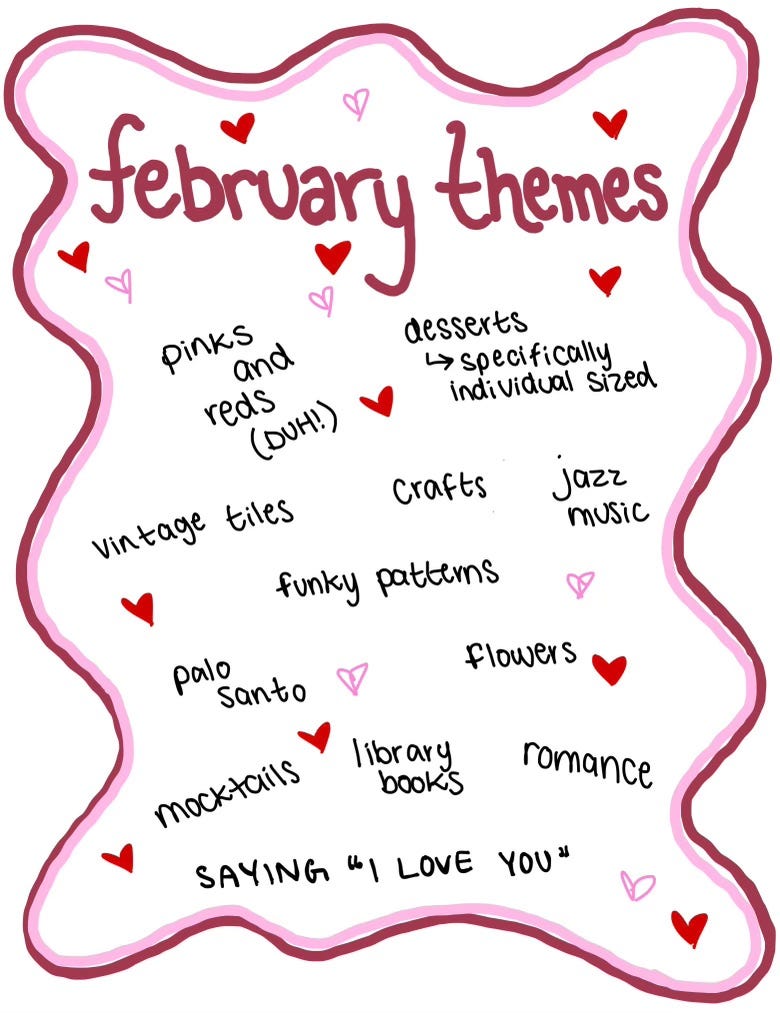 february themes
pinks
and
reds
(DUH!)
desserts
↳ specifically
individual sized
vintage tiles
crafts
jazz
music
funky patterns
palo
santo
flowers
mocktails
library
books
romance
SAYING "I LOVE YOU"